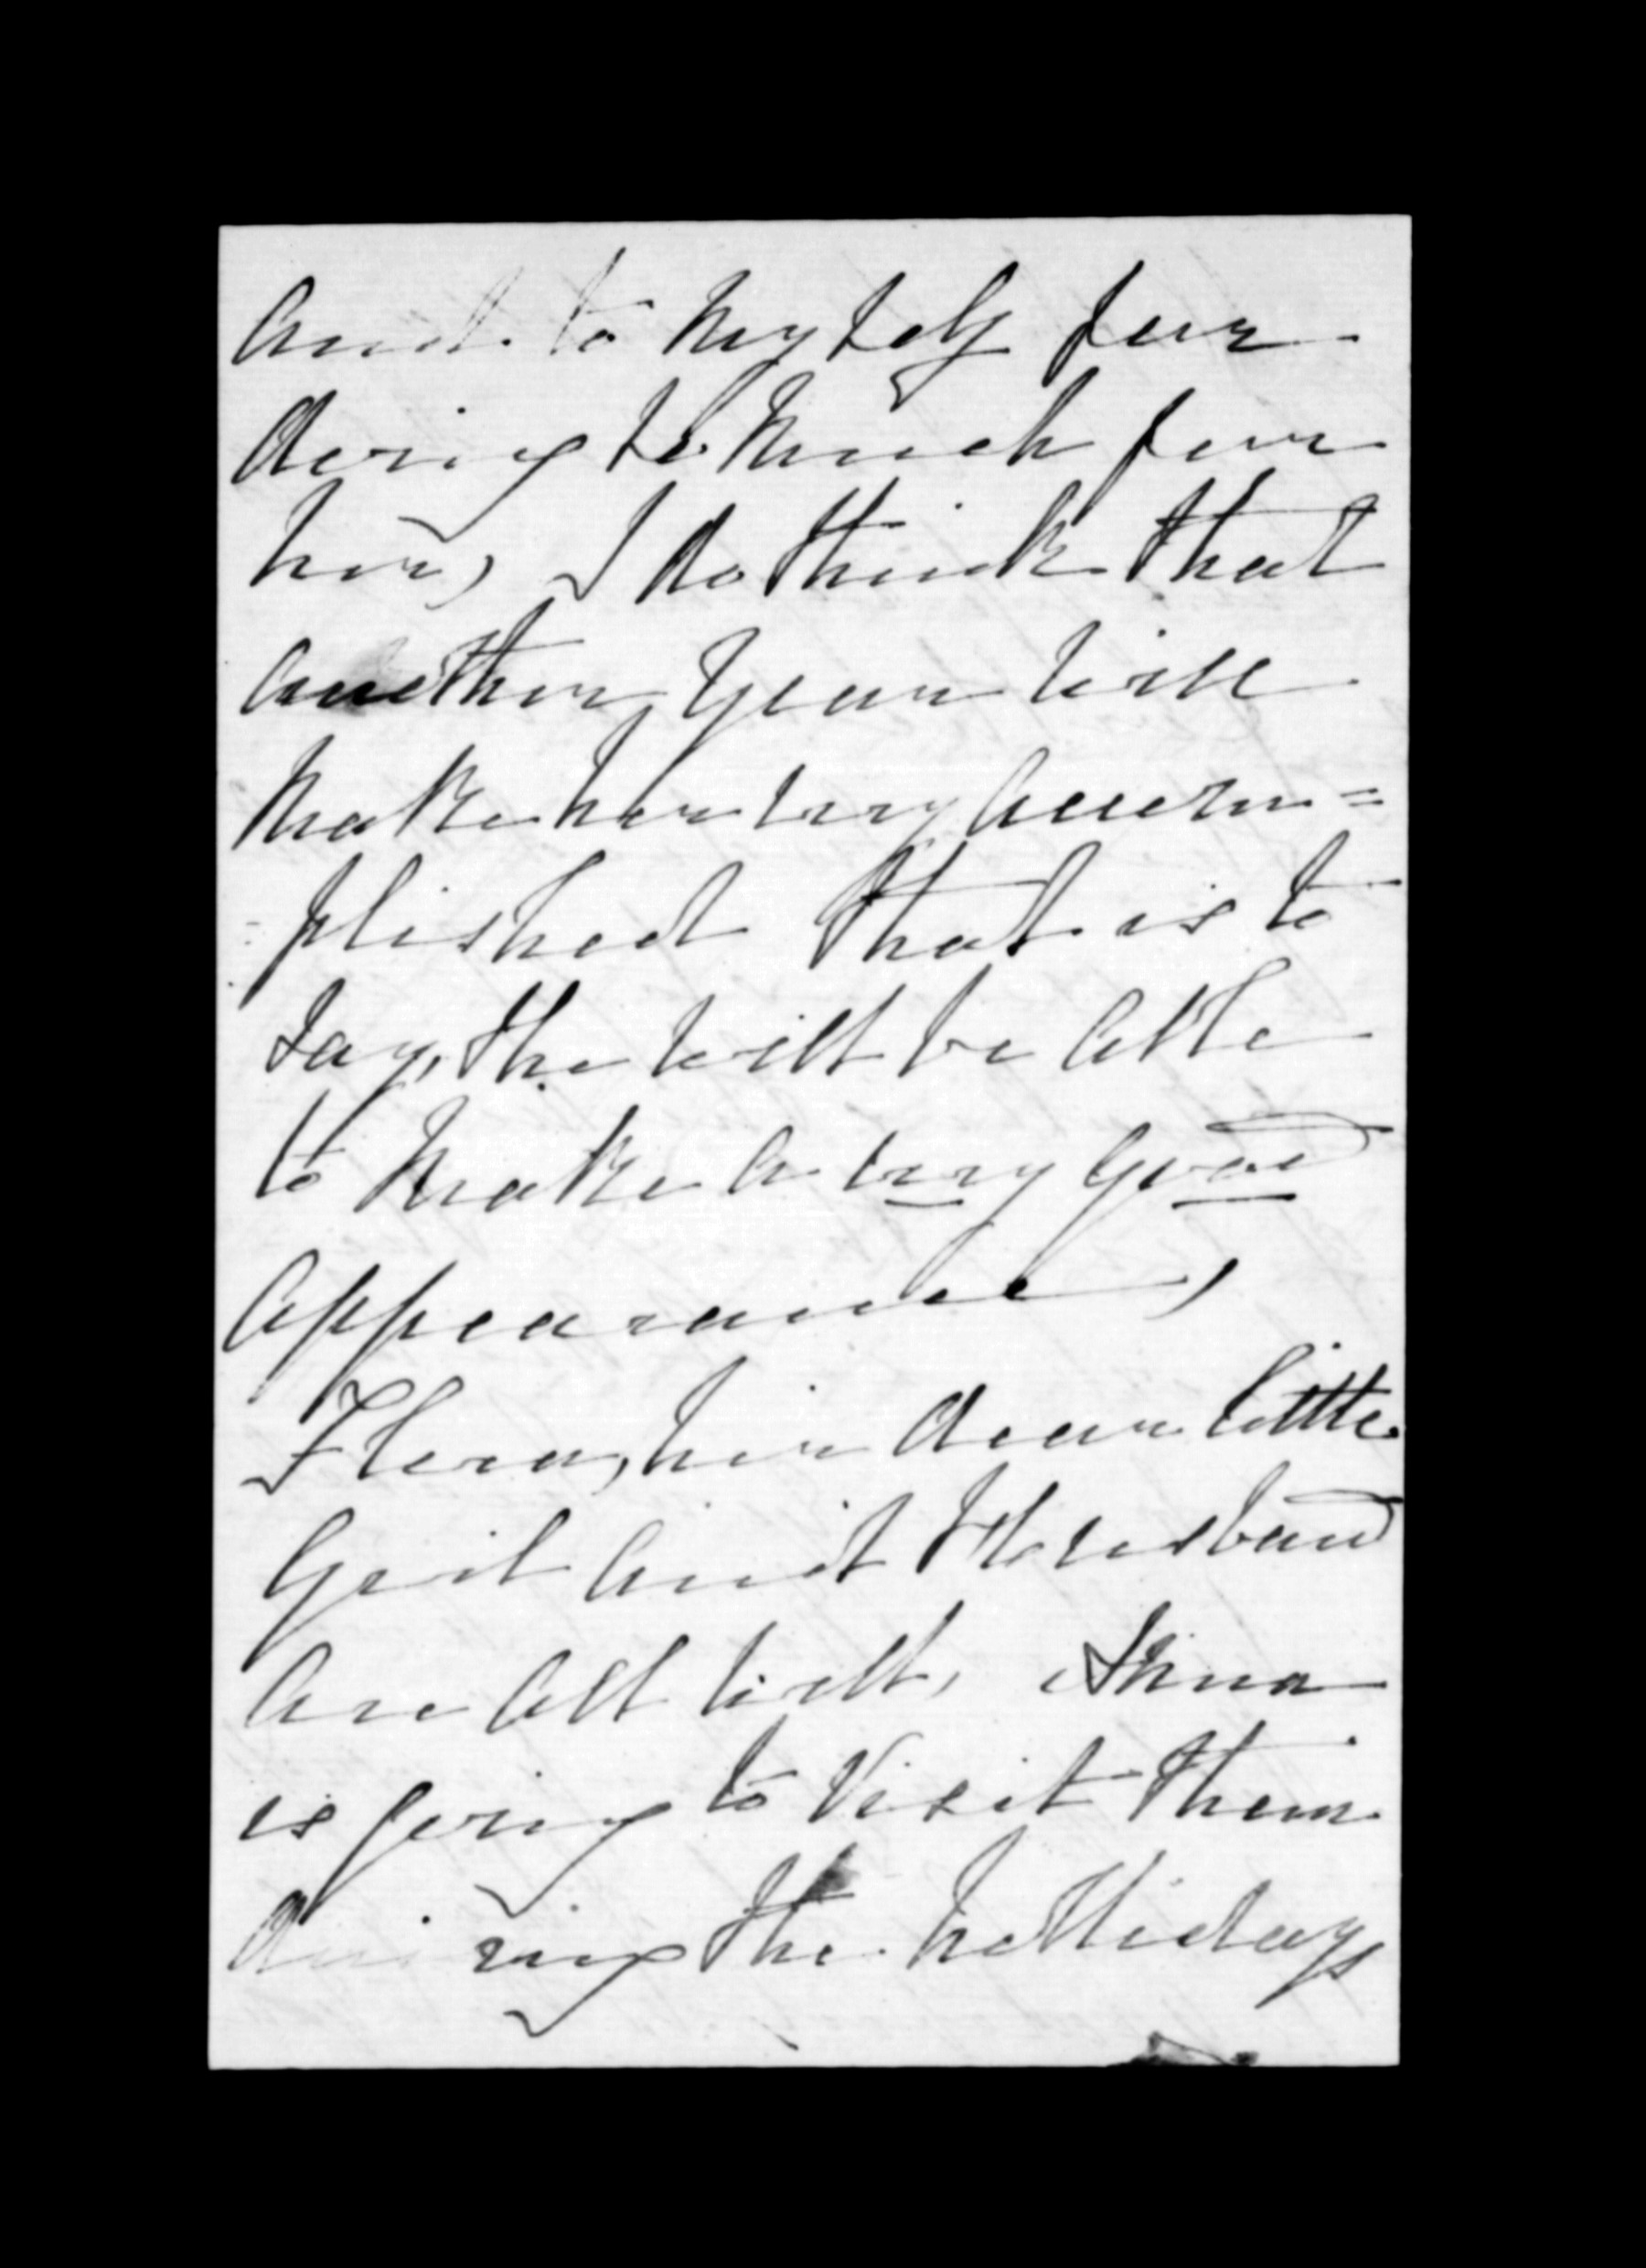 and to myself for
doing so much for
her, I do think that
another year will
make her very accom=
=plished that is to
say, she will be able
to make a very good
appearance,
Flora, her dear little
girl and Husband
are all well, Anna
is going to visit them
during the hollidays